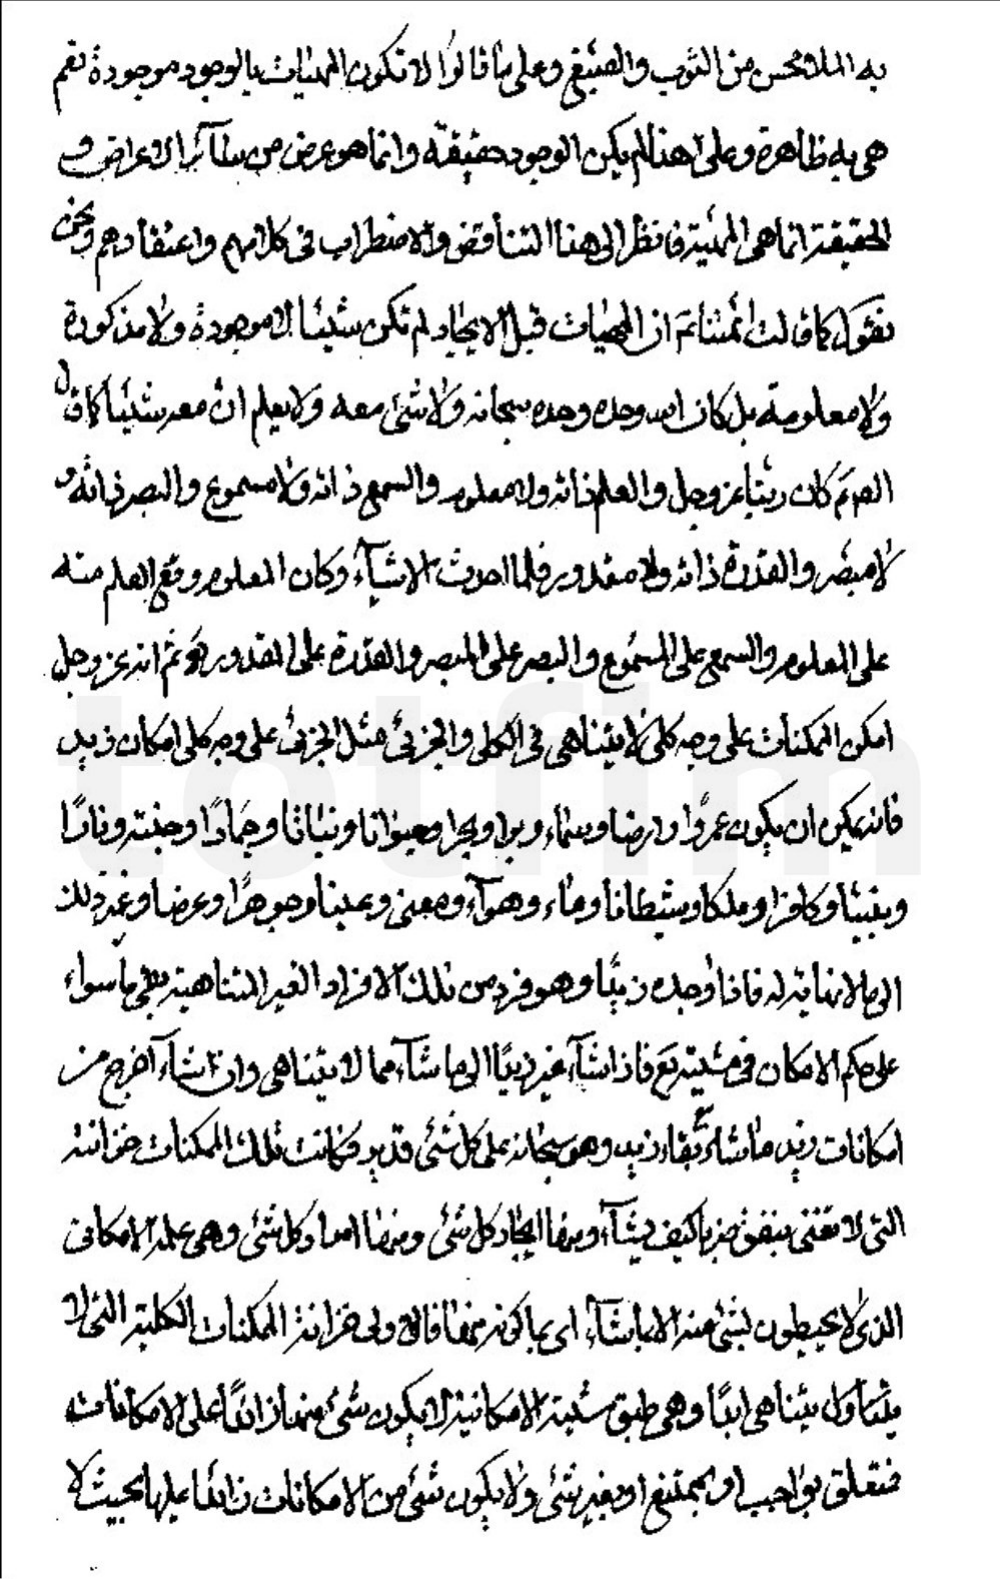 به الملاحس من الثوب والصبغ وعلى ما قالوا لا تكون المهيات بالوجود موجودة نعم
هي به ظاهرة وعلى هذا لم يكن الوجود حقيقة وانما هو عرض من سآئر الاعراض و
الحقيقة انما هي المهية فانظر الى هذا التناقض والاضطراب في كلامهم واعتقادهم ونحن
نقول كما قالت ائمتنا ع ان المهيات قبل الايجاد لم تكن شيئا لا موجودة ولا مذكورة
ولا معلومة بل كان الله وحده وحده سبحانه ولا شئ معه ولا يعلم ان معه شيئا كما قال
الص ع كان ربنا عز وجل والعلم ذاته ولا معلوم والسمع ذاته ولا مسموع والبصر ذاته و
لا مبصر والقدرة ذاته ولا مقدور فلما احدث الاشيآء وكان المعلوم وقع العلم منه
على المعلوم والسمع على المسموع والبصر على المبصر والقدرة على المقدور ثم انه عز وجل
امكن الممكنات على وجه كلي لا يتناهى في الكلي والجزئي مثل الجزئي على وجه كلي امكان زيد
فانه يمكن ان يكون عمروا وارضا وسماء وبرا وبحرا وحيوانا ونباتا وجمادا وجنة ونارا
ونبيا وكافرا وملكا وشيطانا وماء وهوآء ومعنى وعينا وجوهرا وعرضا وغير ذلك
الى ما لا نهاية له فاذا اوجده زيدا وهو فرد من تلك الافراد الغير المتناهية بقي ما سواه
على حكم الامكان في مشيته تع فاذا شآء غير زيدا الى ما شآء مما لا يتناهى وان شآء اخرج من
امكانات زيد ما شاء مع بقاء زيد وهو سبحانه على كل شئ قدير فكانت تلك الممكنات خزانته
التي لا تفنى ينفق منها كيف يشآء ومنها ايجاد كل شئ ومنها امداد كل شئ وهي علمه الامكاني
الذي لا يحيطون بشئ منه الا بما شآء اي بما كونه منها فالاولى خزانة الممكنات الكلية التي لا
يتناهى ابدا وهي طبق مشيته الامكانية لا يكون شئ منها زائدا على الامكانات
فتعلق بواجب او بممتنع او بغير شئ ولا يكون شئ من الامكانات زائدا عليها بحيث لا